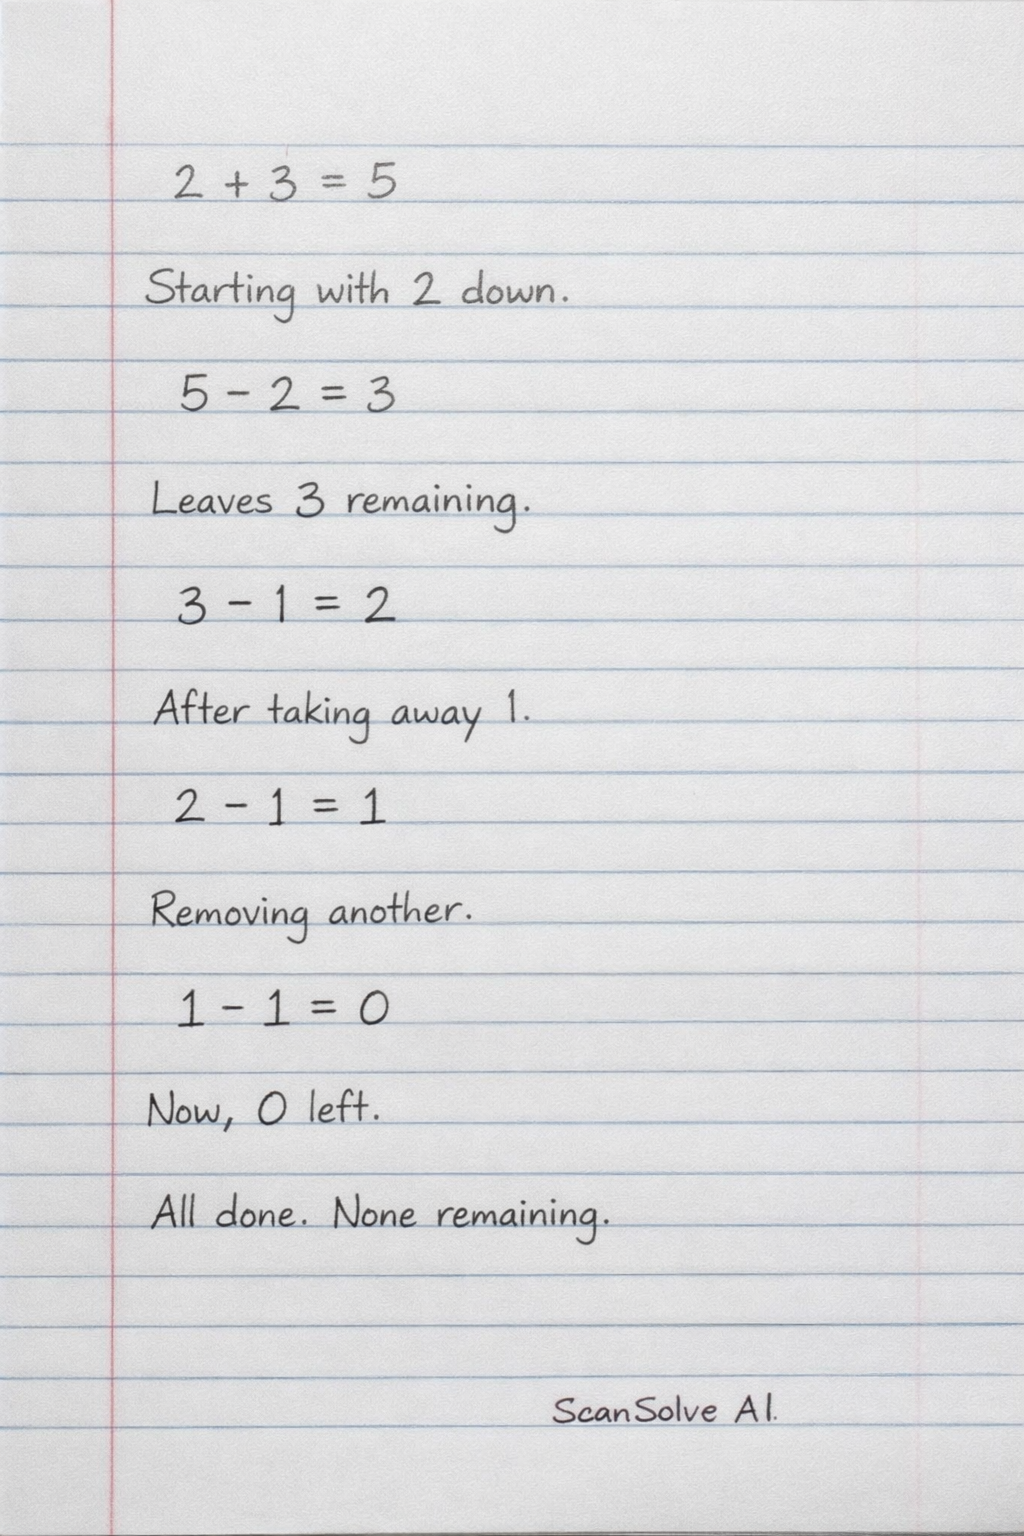 2 + 3 = 5
Starting with 2 down.
5 - 2 = 3
Leaves 3 remaining.
3 - 1 = 2
After taking away 1.
2 - 1 = 1
Removing another.
1 - 1 = 0
Now, 0 left.
All done. None remaining.
ScanSolve AI.